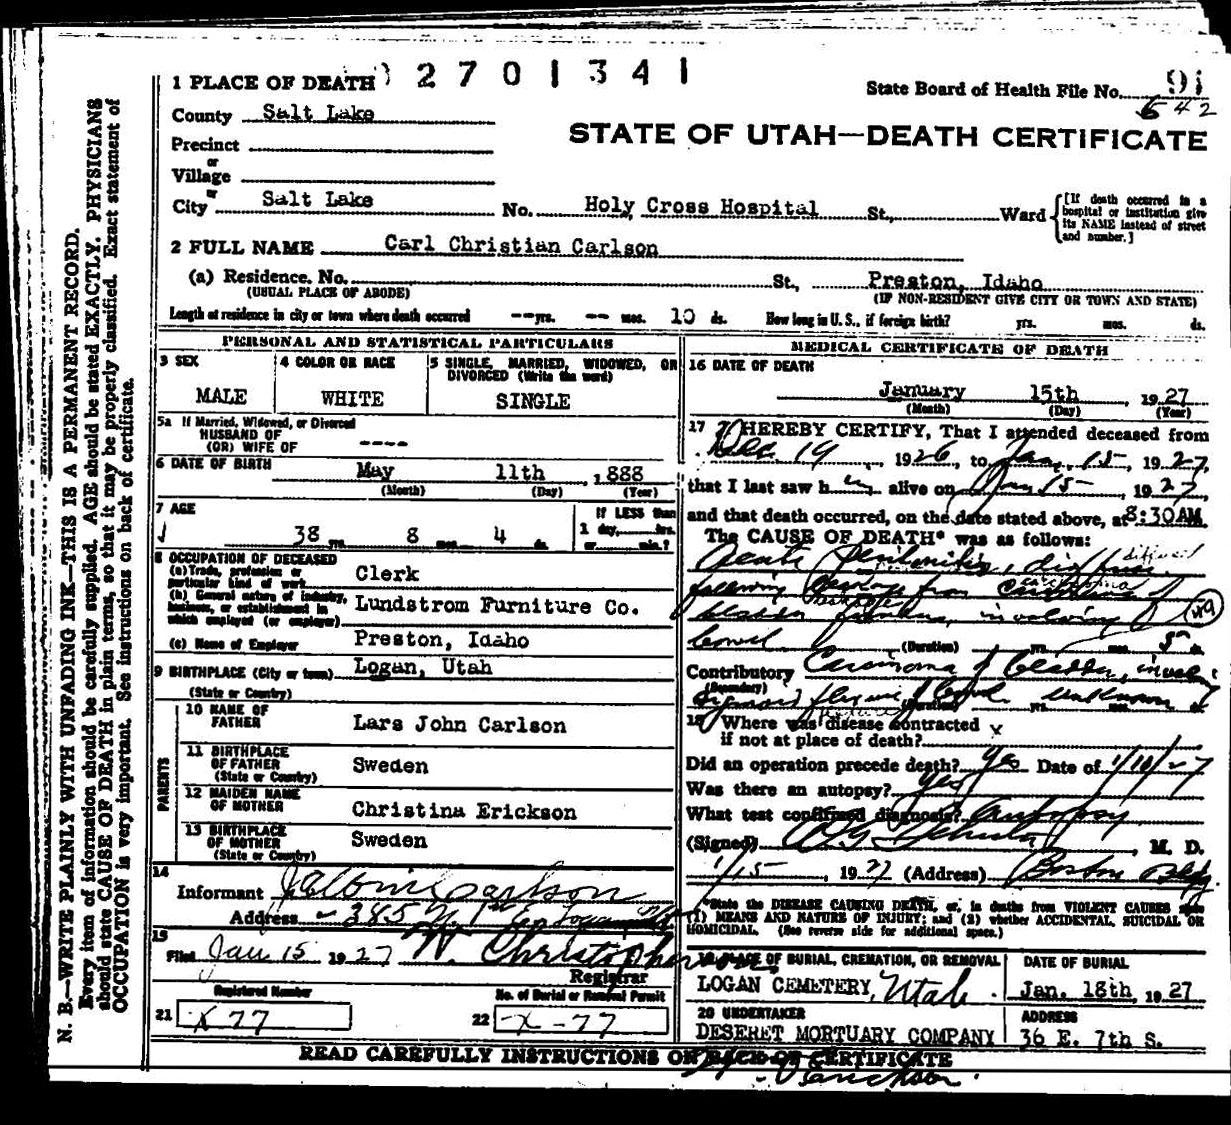 N. B.—WRITE PLAINLY WITH UNFADING INK—THIS IS A PERMANENT RECORD.
Every item of information should be carefully supplied. AGE should be stated EXACTLY. PHYSICIANS
should state CAUSE OF DEATH in plain terms, so that it may be properly classified. Exact statement of
OCCUPATION is very important. See instructions on back of certificate.
2701341
State Board of Health File No. 91
642
STATE OF UTAH—DEATH CERTIFICATE
1 PLACE OF DEATH
County Salt Lake
Precinct
or
Village
or
City Salt Lake No. Holy Cross Hospital St., Ward
[If death occurred in a
hospital or institution give
its NAME instead of street
and number.]
2 FULL NAME Carl Christian Carlson
(a) Residence. No. St., Preston, Idaho
(USUAL PLACE OF ABODE) (IF NON-RESIDENT GIVE CITY OR TOWN AND STATE)
Length of residence in city or town where death occurred --yrs. -- mos. 10 ds. How long in U. S., if foreign birth? yrs. mos. ds.
PERSONAL AND STATISTICAL PARTICULARS
3 SEX
MALE
4 COLOR OR RACE
WHITE
5 SINGLE, MARRIED, WIDOWED, OR
DIVORCED (Write the word)
SINGLE
5a If Married, Widowed, or Divorced
HUSBAND OF
(OR) WIFE OF ----
6 DATE OF BIRTH May 11th ,1888
(Month) (Day) (Year)
7 AGE
38 yrs. 8 mos. 4 ds.
If LESS than
1 day, hrs.
or min.?
8 OCCUPATION OF DECEASED
(a) Trade, profession or
particular kind of work Clerk
(b) General nature of industry,
business, or establishment in
which employed (or employer) Lundstrom Furniture Co.
(c) Name of Employer Preston, Idaho
9 BIRTHPLACE (City or town) Logan, Utah
(State or Country)
PARENTS
10 NAME OF
FATHER Lars John Carlson
11 BIRTHPLACE
OF FATHER
(State or Country) Sweden
12 MAIDEN NAME
OF MOTHER Christina Erickson
13 BIRTHPLACE
OF MOTHER
(State or Country) Sweden
14
Informant Carlson
Address 385 N. 1st E.
15
Filed Jan 15 1927 W. Christopherson
Registrar
Registered Number
21 X 77
No. of Burial or Removal Permit
22 X-77
MEDICAL CERTIFICATE OF DEATH
16 DATE OF DEATH
January 15th , 1927
(Month) (Day) (Year)
17 I HEREBY CERTIFY, That I attended deceased from
Dec. 19 , 1926, to Jan. 15, 1927,
that I last saw h im alive on Jan 15 1927,
and that death occurred, on the date stated above, at 8:30AM
The CAUSE OF DEATH* was as follows:
Acute Peritonitis, diffuse diffused
following from Carcinoma of carcinoma
bladder, involving 49
bowel (Duration) yrs. 5 ds
Contributory Carcinoma of bladder, involv
(Secondary) Sigmoid flexure of bowel (Duration) unknown
18 Where was disease contracted
if not at place of death? x
Did an operation precede death? yes Date of 1/10/27
Was there an autopsy? yes
What test confirmed diagnosis? Autopsy
(Signed) , M. D.
1/15 , 1927 (Address) Boston Bldg
*State the DISEASE CAUSING DEATH, or, in deaths from VIOLENT CAUSES state
(1) MEANS AND NATURE OF INJURY; and (2) whether ACCIDENTAL, SUICIDAL OR
HOMICIDAL. (See reverse side for additional space.)
19 PLACE OF BURIAL, CREMATION, OR REMOVAL
LOGAN CEMETERY, Utah
DATE OF BURIAL
Jan. 18th, 1927
20 UNDERTAKER
DESERET MORTUARY COMPANY
ADDRESS
36 E. 7th S.
READ CAREFULLY INSTRUCTIONS ON BACK OF CERTIFICATE
Erickson